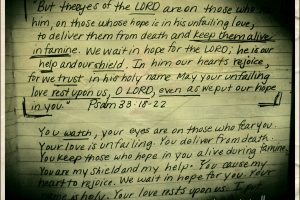 "But the eyes of the LORD are on those who
him, on those whose hope is in his unfailing love,
to deliver them from death and keep them alive
in famine. We wait in hope for the LORD; he is our
help and our shield. In him our hearts rejoice,
for we trust in his holy name. May your unfailing
love rest upon us, O LORD, even as we put our hope
in you." Psalm 33:18-22
You watch, your eyes are on those who fear you.
Your love is unfailing. You deliver from death.
You keep those who hope in you alive during famine.
You are my shield and my help. You cause my
heart to rejoice. We wait in hope for you. Your
name is holy. Your love rests upon us. I